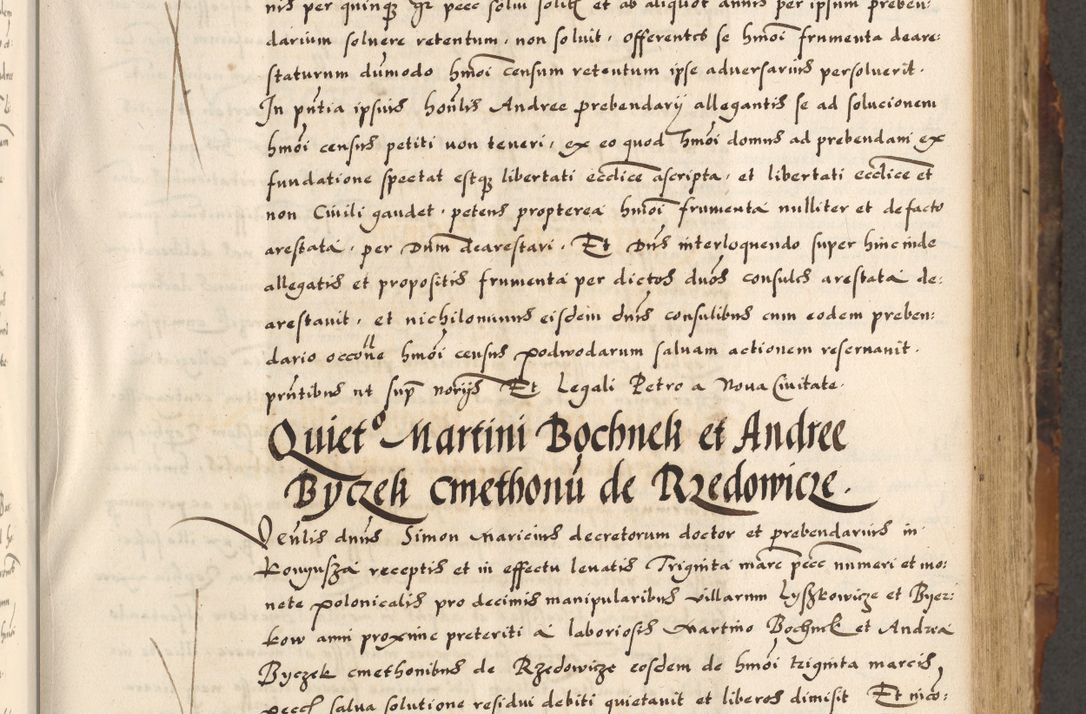 nis per quinq gr pecc solui solit et ab aliquot annis per ipsum preben:
darium soluere retentum, non soluit, offerentes se hmoi frumenta deare:
staturum dummodo hmoi censum retentum ipse adversarius persoluerit.
In pntia ipsius honlis Andree prebendarij allegantis se ad solucionem
hmoi census petiti non teneri, ex eo quod hmoi domus ad prebendam ex
fundatione spectat estq libertati ecclice ascripta, et libertati ecclice et
non Civili gaudet, petens propterea hmoi frumenta nulliter et defacto
arestata, per Dnm dearestari. Et Dns interloquendo super hincinde
allegatis et propositis frumenta per dictos duos consules arestata de:
arestauit, et nichilominus eisdem dnis consulibus cum eodem preben:
dario occone hmoi census podwodarum saluam actionem reseruauit.
pntibus ut sup norijs Et Legali Petro a Nova Civitate.
Quieto Martini Bochnek et Andree
Byczek cmethonu de Rzedowicze.
Venlis dnus Simon Maricius decretorum doctor et prebendarius in
receptis et in effectu leuatis Triginta marc pecc numeri et mo:
nete polonicalis pro decimis manipularibus villarum Lyszkowicze et Byer:
kow anni proxime preteriti a laboriosis Martino Bochnek et Andrea
Byczek cmethonibus de Rzedowicze eosdem de hmoi triginta marcis,
pecc salua solutione residui debiti quietauit et liberos dimisit Et nico: